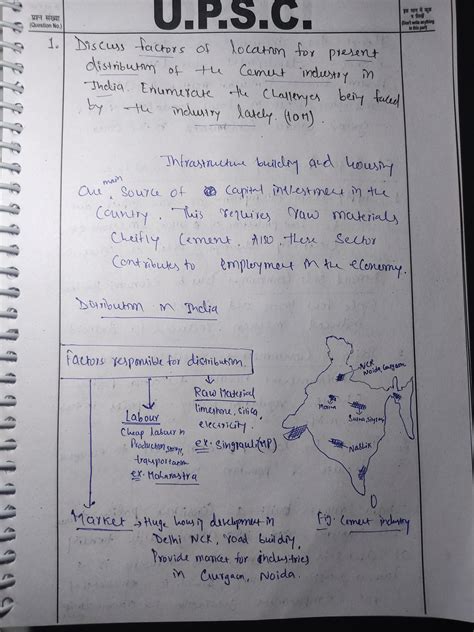 U.P.S.C.
प्रश्न संख्या
(Question No.)
1. Discuss factors of location for present
distribution of the Cement industry in
India. Enumerate the Challenges being faced
by the industry lately. (10M)
Infrastructure building and housing
are main source of capital investment in the
Country. This requires raw materials
Cheifly, Cement. Also these Sector
Contributes to employment in the economy.
Distribution in India
Factors responsible for distribution
Raw Material
limestone, silica,
electricity.
ex- Singrauli (MP)
Labour
Cheap labour in
Production,
transportation
ex- Maharastra
Market → Huge housing development in
Delhi NCR, road building,
Provide market for industries
in Gurgaon, Noida.
NCR
Noida, Gurgaon
Satna
Nashik
Fig. Cement industry